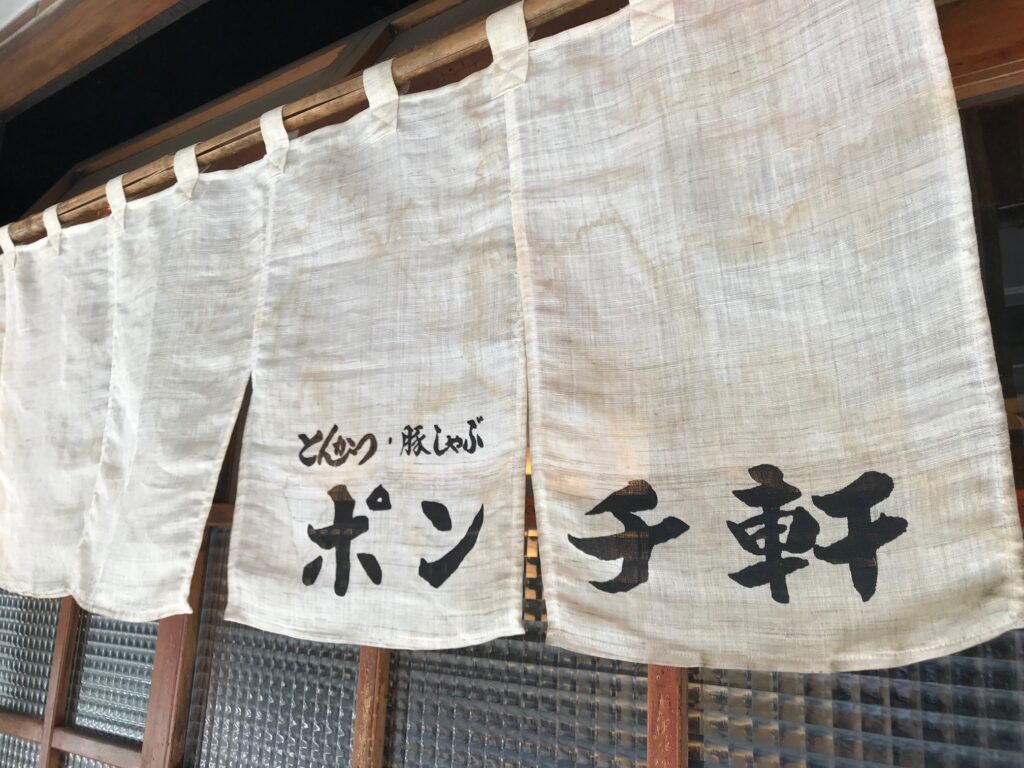 とんかつ・豚しゃぶ
ポンチ軒